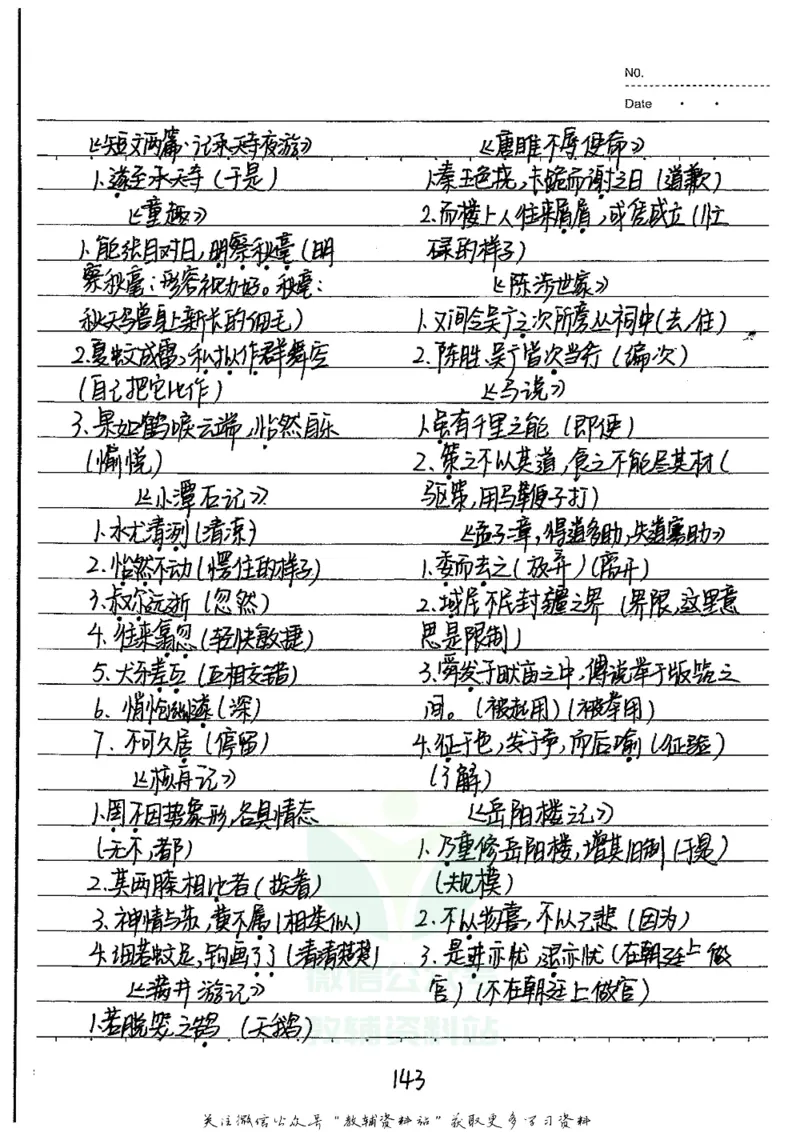 NO.
Date
《短文两篇·记承天寺夜游》
1.遂至承天寺(于是)
《童趣》
1.能张目对日,明察秋毫(明
察秋毫:形容视力好。秋毫:
秋天鸟兽身上新长的细毛)
2.夏蚊成雷,私拟作群鹤舞空
(自己把它比作)
3.果如鹤唳云端,怡然自乐
(愉悦)
《小潭石记》
1.水尤清冽(清凉)
2.怡然不动(愣住的样子)
3.俶尔远逝(忽然)
4.往来翕忽(轻快敏捷)
5.犬牙差互(互相交错)
6.悄怆幽邃(深)
7.不可久居(停留)
《核舟记》
1.罔不因势象形,各具情态
(无不,都)
2.其两膝相比者(挨着)
3.神情与苏、黄不属(相类似)
4.细若蚊足,钩画了了(清清楚楚)
《满井游记》
1.若脱笼之鹄 (天鹅)
《唐雎不辱使命》
1.秦王色挠,长跪而谢之曰(道歉)
2.而楼上人往来屑屑,或告成立(忙
碌的样子)
《陈涉世家》
1.又间令吴广之次所旁丛祠中(去,住)
2.陈胜、吴广皆次当行(编次)
《马说》
1.虽有千里之能(即使)
2.策之不以其道,食之不能尽其材(
驱策,用马鞭子打)
《孟子二章,得道多助,失道寡助》
1.委而去之(放弃)(离开)
2.域民不民封疆之界(界限,这里意
思是限制)
3.舜发于畎亩之中,傅说举于版筑之
间。(被起用)(被举用)
4.征于色,发于声,而后喻(征验)
(了解)
《岳阳楼记》
1.乃重修岳阳楼,增其旧制(于是)
(规模)
2.不以物喜,不以己悲(因为)
3.是进亦忧,退亦忧(在朝廷上做
官)(不在朝廷上做官)
微信公众号
教辅资料站
143
关注微信公众号"教辅资料站"获取更多学习资料